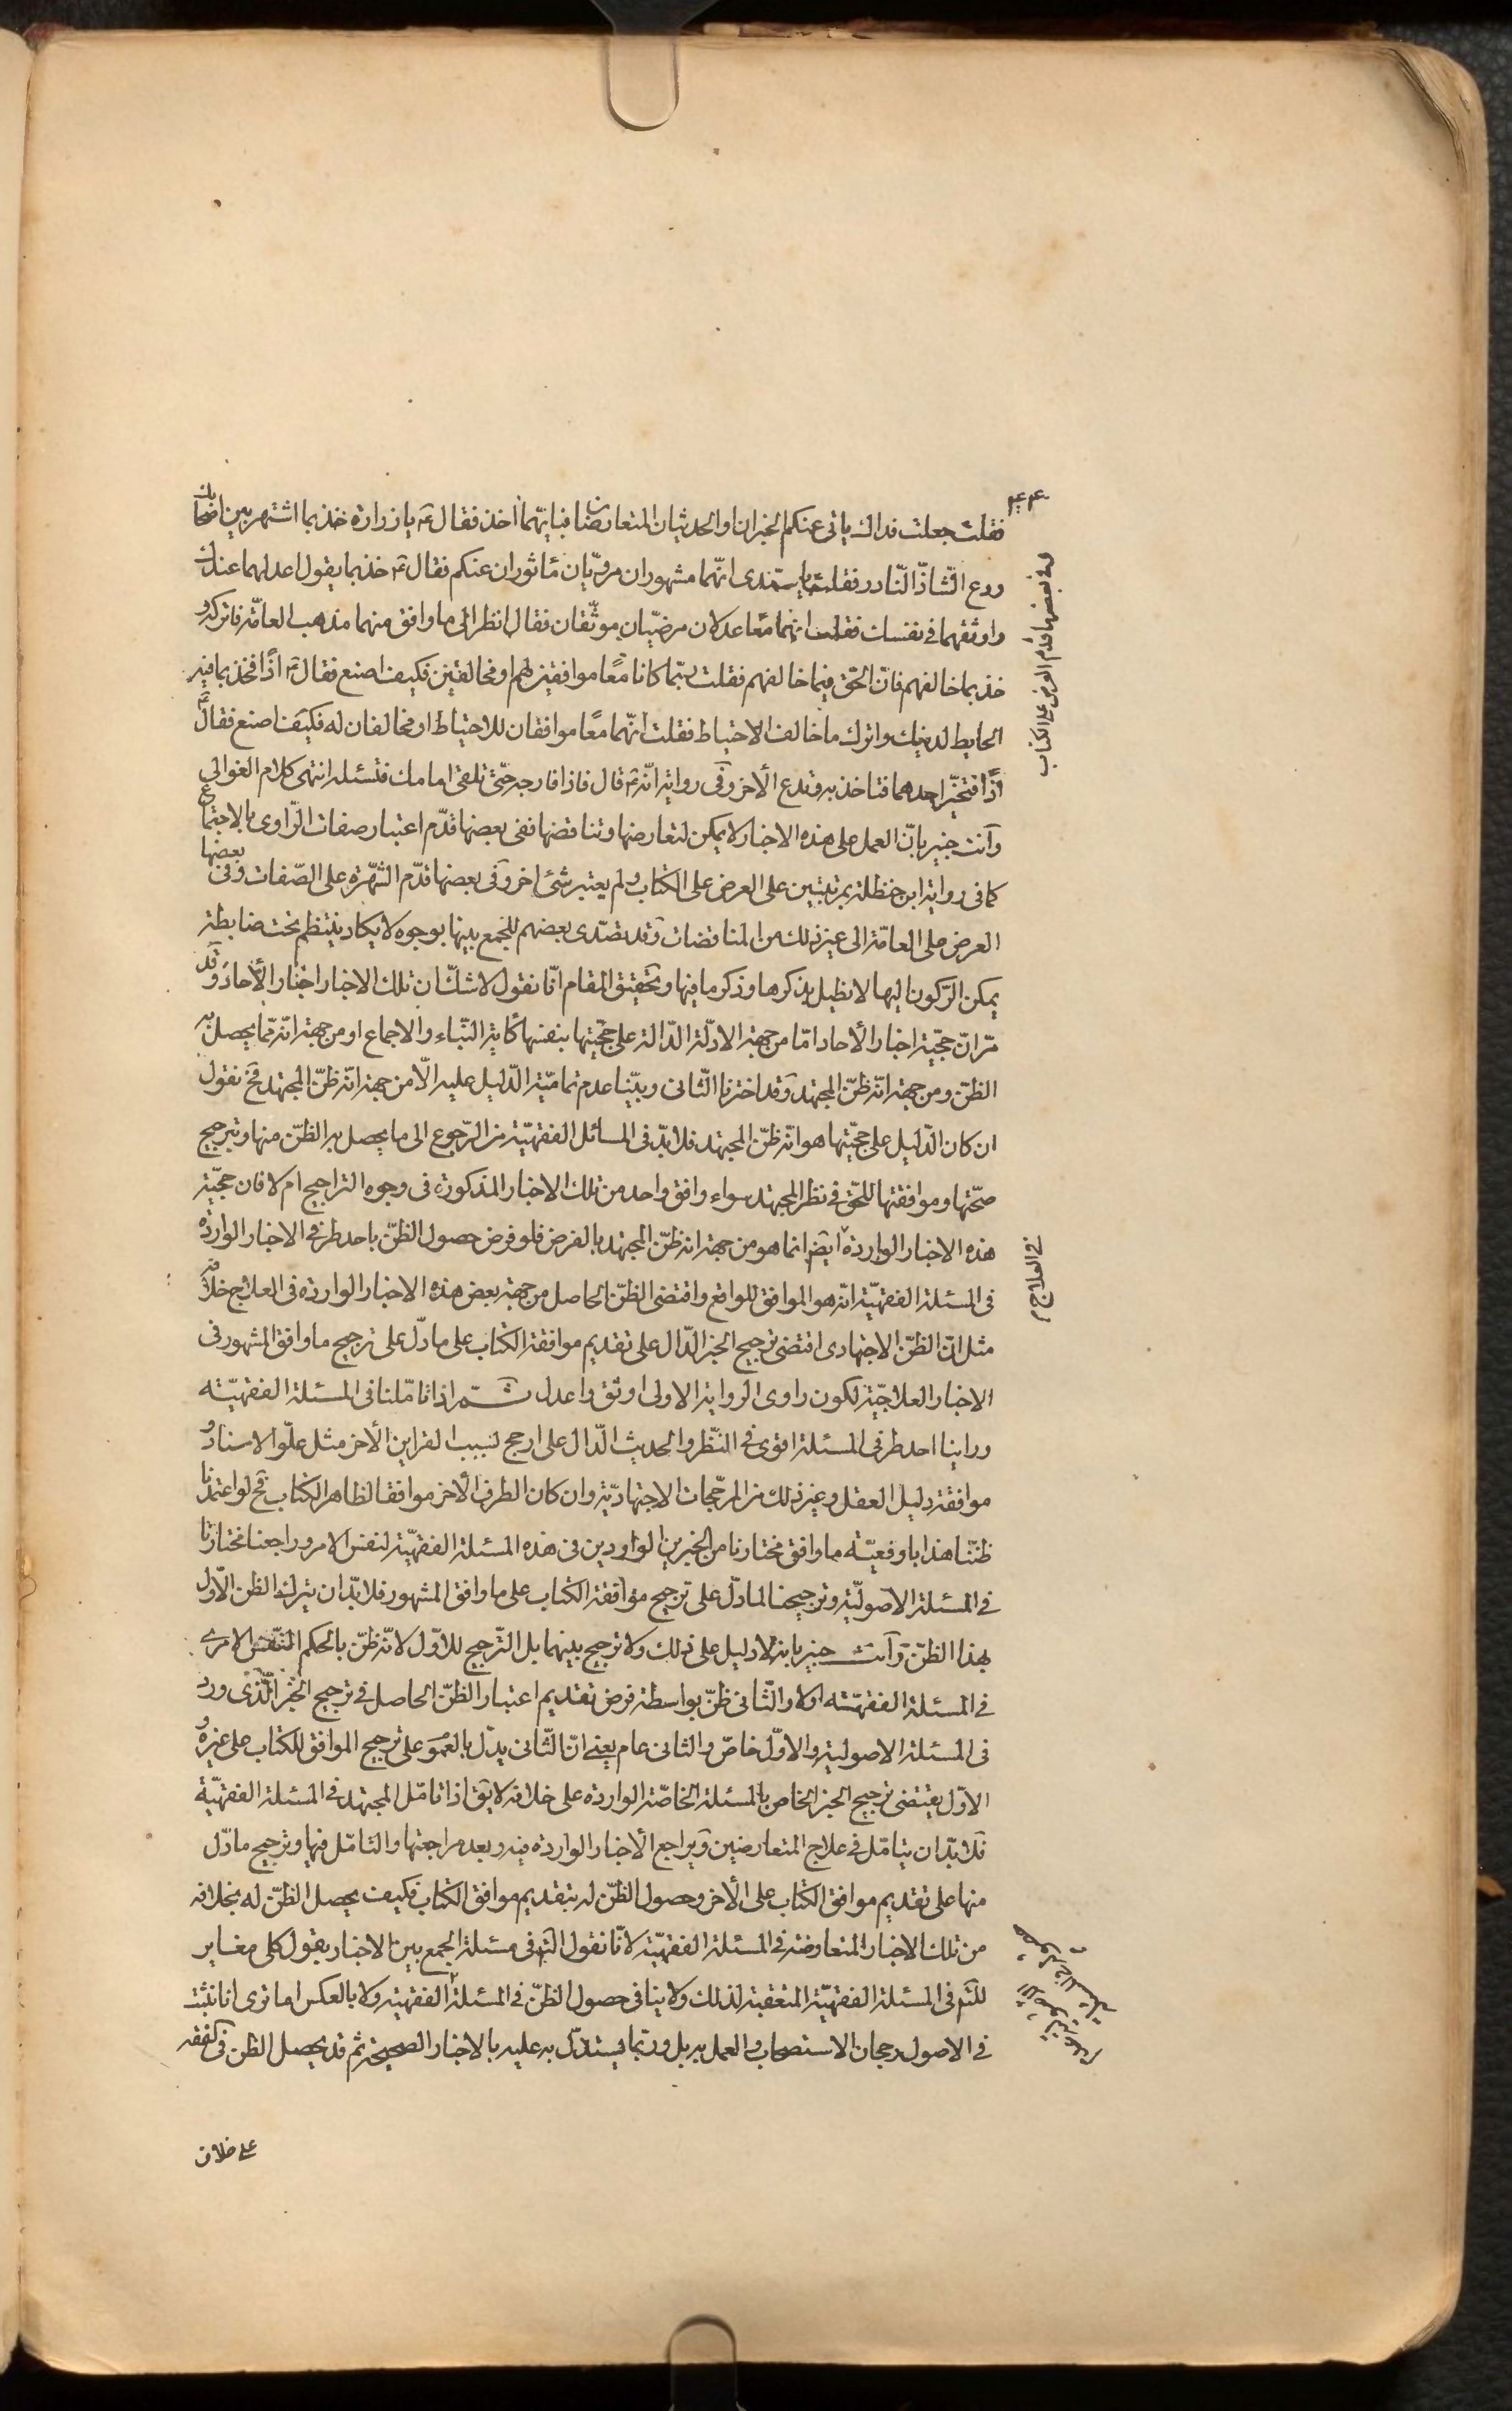 ۴۴۳
فقلت جعلت فداك ياتى عنكم الخبران او الحديثان المتعارضان فبايّهما اخذ فقال ع يا زرارة خذ بما اشتهر بين اصحابك
ودع الشّاذّ النّادر فقلت يا سيّدى انّهما مشهوران مرويّان مأثوران عنكم فقال ع خذ بما يقول اعدلهما عندك
واوثقهما فى نفسك فقلت انهما معًا عدلان مرضيّان موثّقان فقال انظر الى ما وافق منهما مذهب العامّة فاتركه و
خذ بما خالفهم فانّ الحقّ فيما خالفهم فقلت ربّما كانا معًا موافقين لهم او مخالفين فكيف اصنع فقال ع اذًا فخذ بما فيه
الحايط لدينك واترك ما خالف الاحتياط فقلت انّهما معًا موافقان للاحتياط او مخالفان له فكيف اصنع فقال ع
اذًا فتخيّر احدهما فتاخذ به وتدع الأخر وفى رواية انّه ع قال فاذا فارجه حتّى تلقى امامك فتسئله انتهى كلام الغوالى
وانت خبير بانّ العمل على هذه الاخبار لا يمكن لتعارضها وتناقضها ففى بعضها قدّم اعتبار صفات الرّاوى بالاجتماع
كما فى رواية ابن حنظلة بمرتبتين على العرض على الكتاب ولم يعتبر شئ اخر وفى بعضها قدّم الشّهرة على الصّفات وفى بعضها
وفى بعضها قدّم العرض على الكتاب
العرض على العامّة الى غير ذلك من المناقضات وقد تصدّى بعضهم للجمع بينها بوجوه لا يكاد ينتظم تحت ضابطة
يمكن الرّكون اليها لا نطيل بذكرها وذكر ما فيها وتحقيق المقام انّا نقول لا شكّ ان تلك الاخبار اخبار الأحاد وقد
مرّ انّ حجّية اخبار الأحاد امّا من جهة الادلّة الدّالة على حجّيتها بنفسها كاية النّباء والاجماع او من جهة انّه ممّا يحصل به
الظنّ ومن جهة انّه ظنّ المجتهد وقد اخترنا الثّانى وبيّنا عدم تماميّة الدّليل عليه الّا من جهة انّه ظنّ المجتهد فح نقول
ان كان الدّليل على حجّيتها هو انّه ظنّ المجتهد فلا بدّ فى المسائل الفقهيّة من الرّجوع الى ما يحصل به الظنّ منها وترجيح
صحّتها وموافقتها للحقّ فى نظر المجتهد سواء وافق واحد من تلك الاخبار المذكورة فى وجوه التراجيح ام لا فان حجّية
هذه الاخبار الواردة ايضا انما هو من جهة انه ظنّ المجتهد بالفرض فلو فرض حصول الظنّ باحد طرفى الاخبار الواردة
فى العلاج م
فى المسئلة الفقهيّة انّه هو الموافق للواقع واقتضى الظنّ الحاصل من جهة بعض هذه الاخبار الواردة فى العلاج خلافه
مثل انّ الظنّ الاجتهادى اقتضى ترجيح الخبر الدّال على تقديم موافقة الكتاب على ما دّل على ترجيح ما وافق المشهور فى
الاخبار العلاجيّة لكون راوى الرواية الاولى اوثق واعدل ثمّ اذا تامّلنا فى المسئلة الفقهيّة
وراينا احد طرفى المسئلة اقوى فى النّظر والحديث الدّال على ارجح لسبب القراين الأخر مثل علوّ الاسناد و
موافقة دليل العقل وغير ذلك من المرجّحات الاجتهاديّة وان كان الطرف الأخر موافقا لظاهر الكتاب فح لو اعتمدنا
ظنّنا هذا باوفعيّة ما وافق مختارنا من الخبرين الواردين فى هذه المسئلة الفقهيّة لنفس الامر وراجعنا مختارنا
فى المسئلة الاصوليّة وترجيحنا لما دّل على ترجيح موافقة الكتاب على ما وافق المشهور فلا بدّ ان يترك الظن الاّول
بهذا الظنّ وانت خبير بانه لا دليل على ذلك ولا ترجيح بينهما بل التّرجيح للاوّل لانّه ظنّ بالحكم النّفس الامرى
فى المسئلة الفقهيّة اولا والثّانى ظنّ بواسطة فرض تقديم اعتبار الظنّ الحاصل فى ترجيح الخبر الّذى ورد
فى المسئلة الاصولية والاوّل خاصّ والثانى عام يعنى انّ الثّانى يدّل بالعموم على ترجيح الموافق للكتاب على غيره و
الاوّل يقتضى ترجيح الخبر الخاص بالمسئلة الخاصّة الواردة على خلافه لا يق اذا تامّل المجتهد فى المسئلة الفقهيّة
فلا بدّ ان يتامّل فى علاج المتعارضين ويراجع الأخبار الواردة فيه وبعد مراجعتها والتامّل فيها وترجيح ما دّل
منها على تقديم موافق الكتاب على الأخر وحصول الظنّ له بتقديم موافق الكتاب فكيف يحصل الظنّ له بخلافه
من تلك الاخبار المتعارضة فى المسئلة الفقهيّة لانّا نقول التم فى مسئلة الجمع بين الاخبار بقول كلى مغاير
للتم فى المسئلة الفقهيّة المتعقبة لذلك ولا ينافى حصول الظنّ فى المسئلة الفقهية ولا بالعكس اما ترى انا نثبت
فى الاصول رجحان الاستصحاب والعمل به بل وربّما يستدّل به عليه بالاخبار الصحيحة ثم قد يحصل الظن فى الفقه
على خلاف